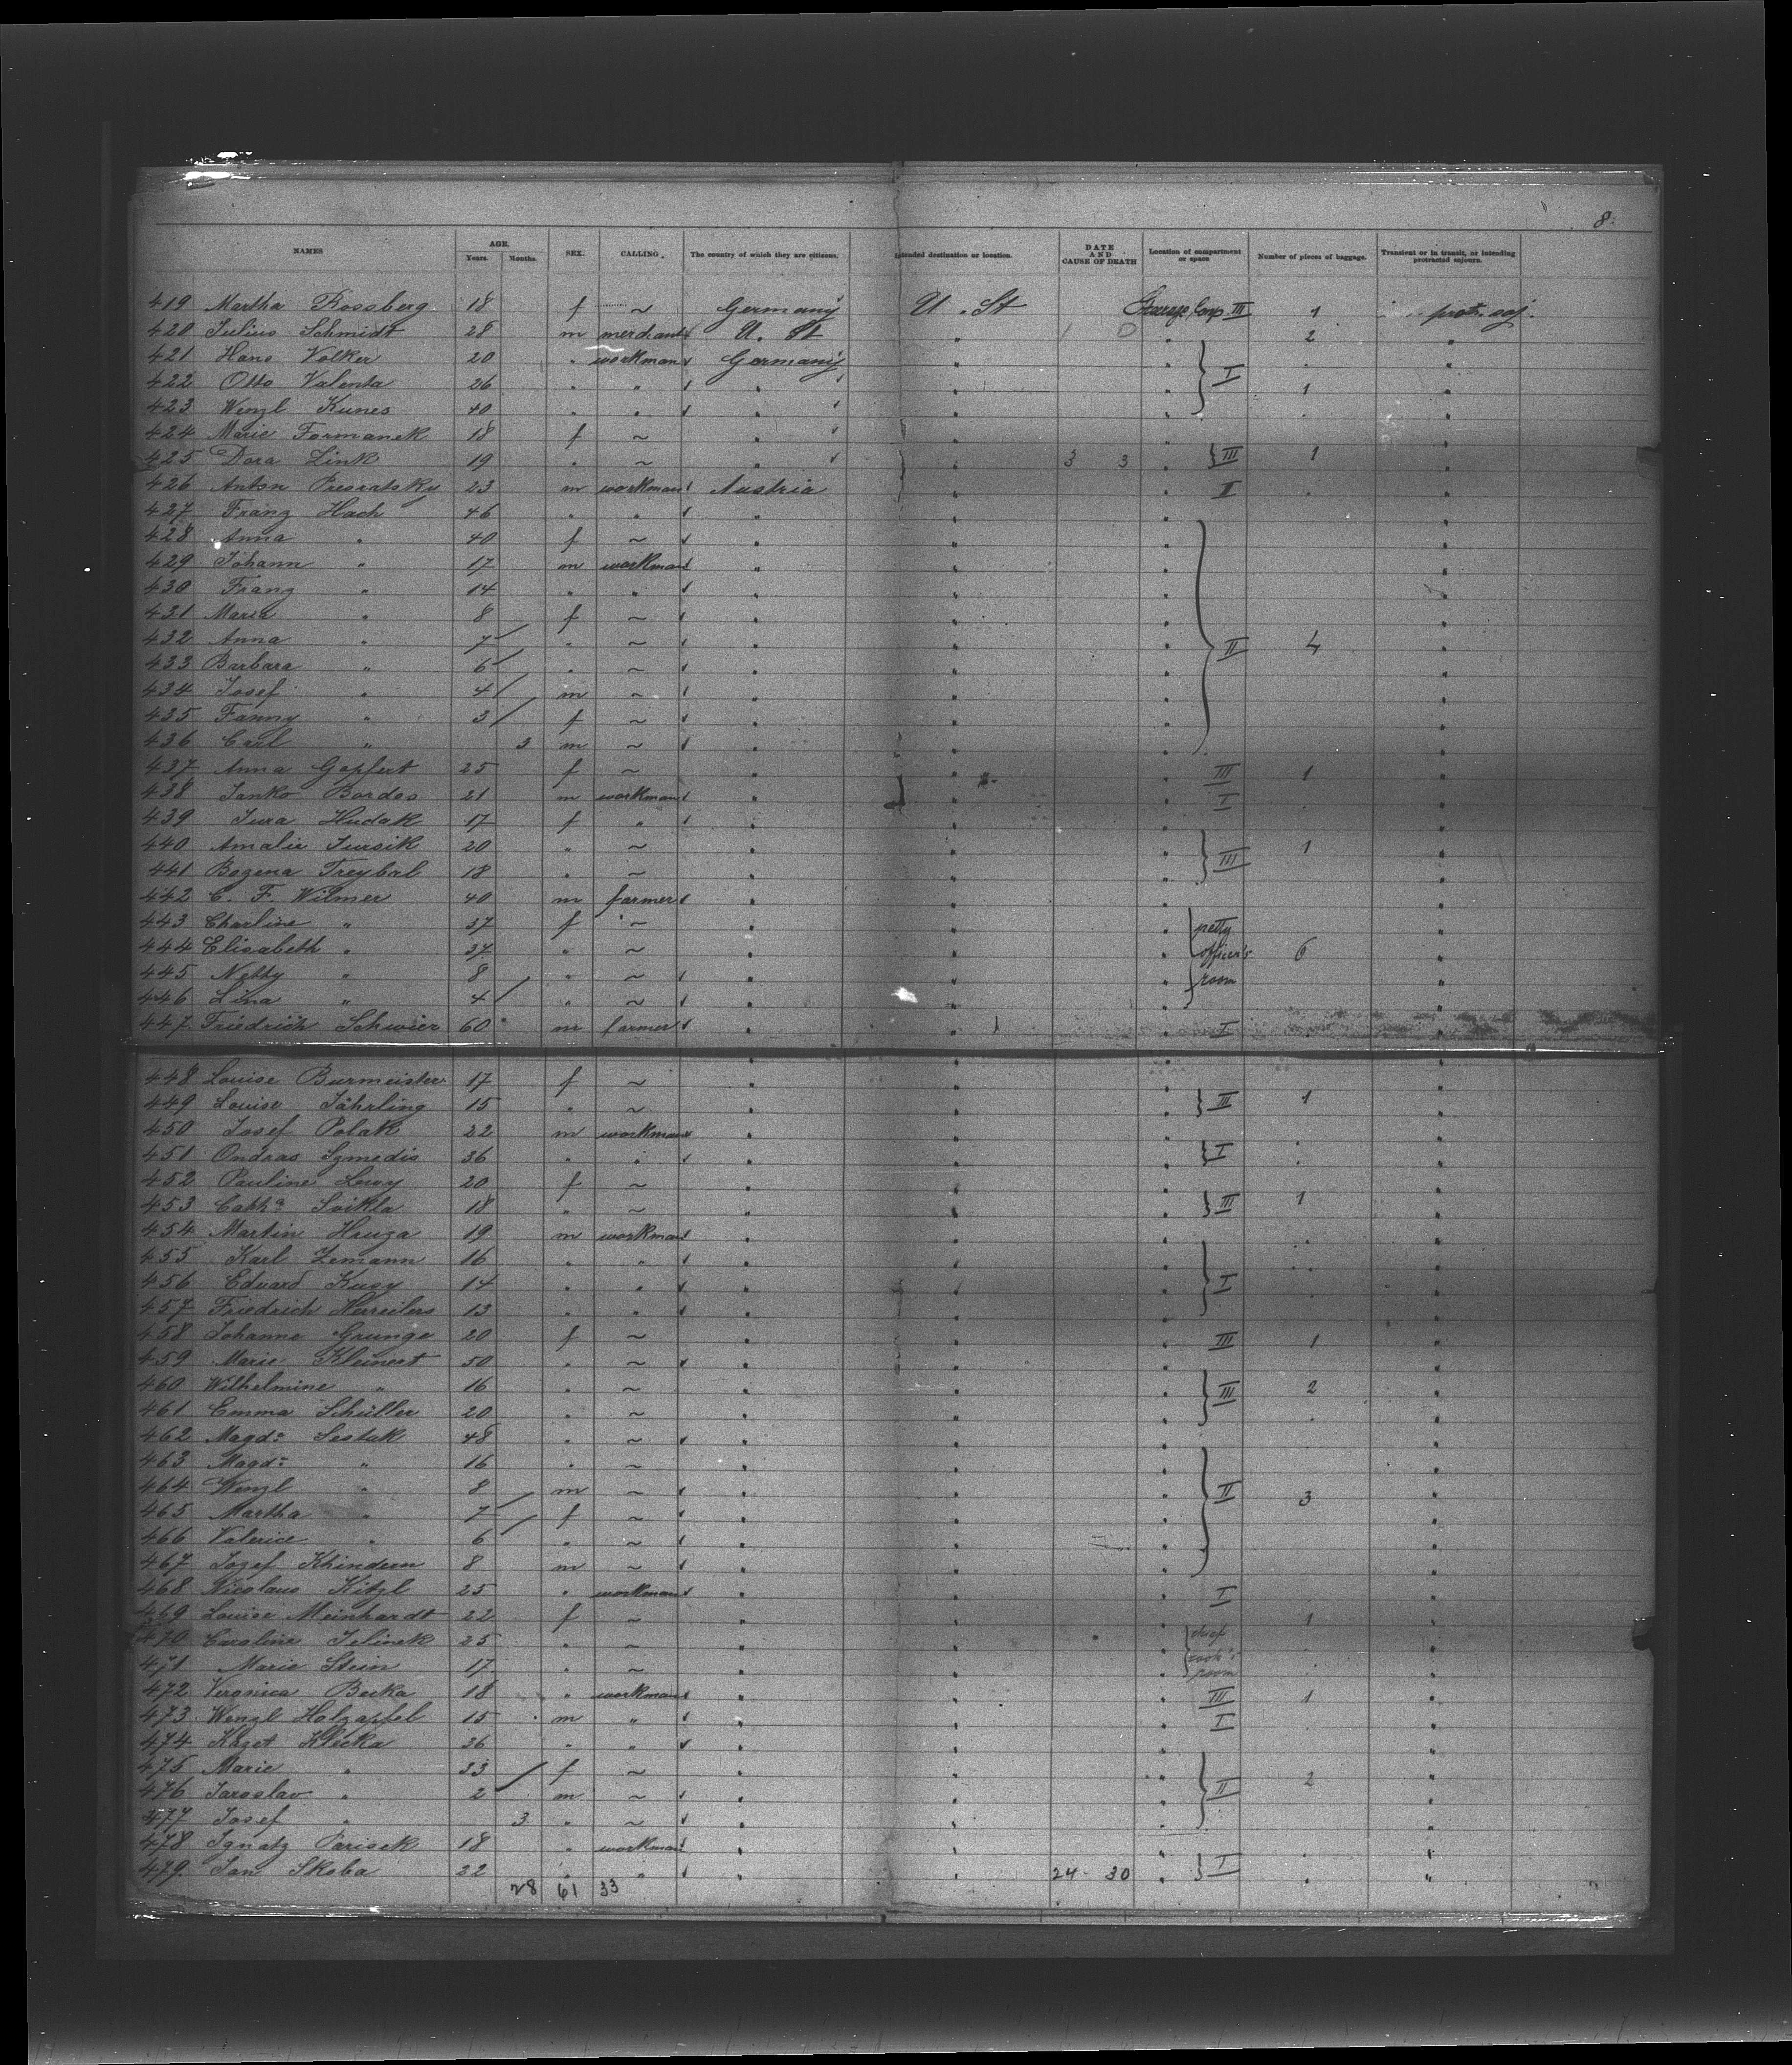 8.
NAMES AGE. SEX. CALLING. The country of which they are citizens. Intended destination or location. DATE AND CAUSE OF DEATH Location of compartment or space. Number of pieces of baggage. Transient or in transit, or intending protracted sojourn.
Years. Months.
419 Martha Rossberg 18 f ~ Germany U. St Steerage Comp. III 1 prot. soj.
420 Julius Schmidt 28 m merchant U. St " 1 0 " 2 "
421 Hans Volker 20 " workman Germany " " "
422 Otto Valenta 26 " " " " " I 1 "
423 Wenzl Kunes 40 " " " " " "
424 Marie Formanek 18 f ~ " " " "
425 Dora Link 19 " ~ " " 3 3 " III 1 "
426 Anton 23 m workman Austria " " II "
427 Franz Hach 46 " " " " " "
428 Anna " 40 f ~ " " " "
429 Johann " 17 m workman " " " "
430 Franz " 14 " " " " " "
431 Maria " 8 f ~ " " " "
432 Anna " 7 " ~ " " " II 4 "
433 Barbara " 6 " ~ " " " "
434 Josef " 4 m ~ " " " "
435 Fanny " 3 f ~ " " " "
436 Carl " 3 m ~ " " " "
437 Anna Gopfert 25 f ~ " " " III 1 "
438 Janko Bordas 21 m workman " " " I "
439 Jura Hudak 17 f " " " " "
440 Amalie Jursik 20 " ~ " " " III 1 "
441 Bozena Treybal 18 " ~ " " " "
442 C. F. Wilmer 40 m farmer " " " "
443 Charline " 37 f ~ " " " petty "
444 Elisabeth " 37 " ~ " " " officer's 6 "
445 Netty " 8 " ~ " " " room "
446 Lina " 4 " ~ " " " "
447 Friedrich Schwier 60 m farmer " " " I "
448 Louise Burmeister 17 f ~ " " " "
449 Louise Jährling 15 " ~ " " " III 1 "
450 Josef Polak 22 m workman " " " "
451 Ondras Szmedis 36 " " " " " I "
452 Pauline Lewy 20 f ~ " " " "
453 Cath.a Svikla 18 " ~ " " " III 1 "
454 Martin Hruza 19 m workman " " " "
455 Karl Zemann 16 " " " " " "
456 Eduard Kusy 14 " " " " " I "
457 Friedrich 13 " " " " " "
458 Johanna Grunge 20 f ~ " " " III 1 "
459 Marie Kleinert 50 " ~ " " " "
460 Wilhelmine " 16 " ~ " " " III 2 "
461 Emma Schüller 20 " ~ " " " "
462 Magd.a Sestak 48 " ~ " " " "
463 Magd.a " 16 " ~ " " " "
464 Wenzl " 8 m ~ " " " II 3 "
465 Martha " 7 f ~ " " " "
466 Valerice " 6 " ~ " " " "
467 Jozef Khindern 8 m ~ " " " "
468 Nicolaus Kitzl 25 " workman " " " I "
469 Louise Meinhardt 22 f ~ " " " 1 "
470 Caroline Jelinek 25 " ~ " " " chief "
471 Marie Stein 17 " ~ " " " cook's room "
472 Veronica Becka 18 " workman " " " III 1 "
473 Wenzl Holzapfel 15 m " " " " I "
474 Klicka 36 " " " " " "
475 Marie " 33 f ~ " " " 2 "
476 Jaroslav " 2 m ~ " " " II "
477 Josef " 3 " ~ " " " "
478 Ignatz Parisek 18 " workman " " " "
479 Jan Skoba 22 " " " " 24 30 " I "
28 61 33